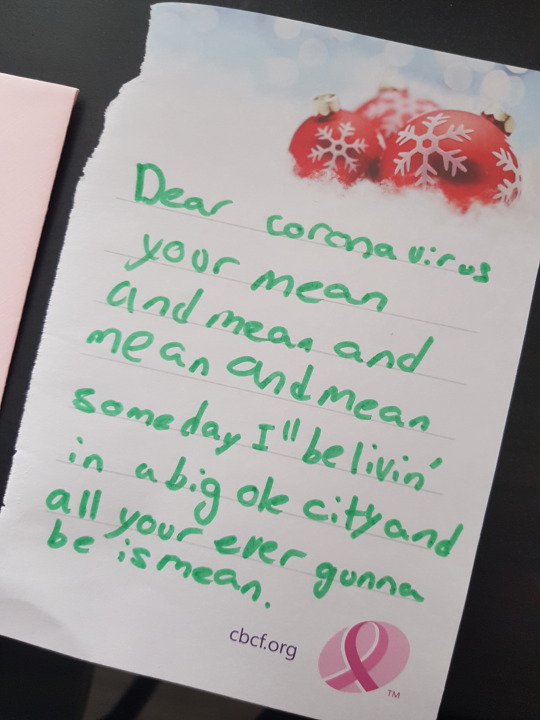 Dear coronavirus
your mean
and mean and
mean and mean
someday I'll be livin'
in a big ole city and
all your ever gunna
be is mean.
cbcf.org
TM